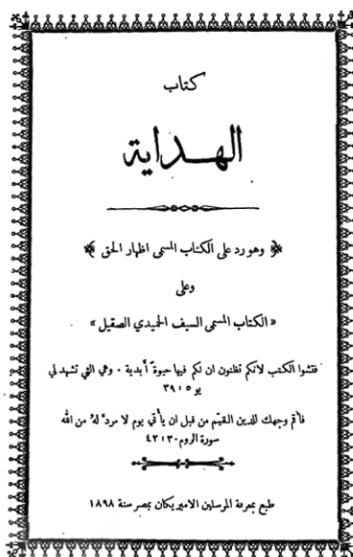 كتاب
الهداية
وهو رد على الكتاب المسمى اظهار الحق
وعلى
«الكتاب المسمى السيف الحميدي الصقيل»
فتشوا الكتب لانكم تظنون ان لكم فيها حيوة ابدية ٠ وهي التي تشهد لي
يو ٥ : ٣٩
فاقم وجهك للدين القيّم من قبل ان يأتي يوم لا مردّ لهُ من الله
سورة الروم ٣٠ : ٤٣
طبع بمعرفة المرسلين الاميريكان بمصر سنة ١٨٩٨